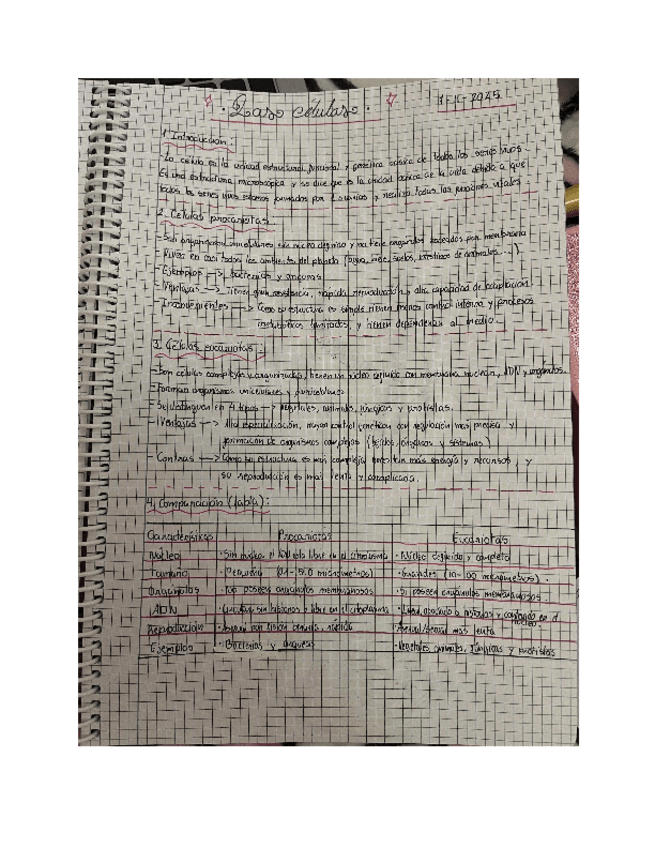 células.
1. Introducción:
- La célula es la unidad estructural, funcional y genética básica de todos los seres vivos.
Es una estructura microscópica y se dice que es la unidad básica de la vida debido a que
todos los seres vivos estamos formados por células y realiza todas las funciones vitales.
2. Células procariotas.
- Son organismos unicelulares sin núcleo definido y no tiene orgánulos rodeados por membrana
- Viven en casi todos los ambientes del planeta (agua, aire, suelos, intestinos de animales...)
- Ejemplos --> bacterias y arqueas
- Ventajas --> Tienen gran resistencia, rápida reproducción y alta capacidad de adaptación.
- Inconvenientes --> Como su estructura es simple tienen menos control interno y procesos
metabólicos limitados, y tienen dependencia al medio.
3. Células eucariotas:
- Son células complejas y organizadas, tienen un núcleo definido con membrana nuclear, ADN y orgánulos.
- Forman organismos unicelulares y pluricelulares
- Se distinguen en 4 tipos --> vegetales, animales, fúngicas y protistas.
- Ventajas --> Alta especialización, mayor control genético con regulación más precisa y
formación de organismos complejos (tejidos, órganos y sistemas)
- Contras --> Como su estructura es más compleja necesitan más energía y recursos, y
su reproducción es más lenta y complicada.
4. Comparación (tabla):
Características Procariotas Eucariotas
Núcleo · Sin núcleo, el ADN está libre en el citoplasma · Núcleo definido y completo
Tamaño · Pequeña (0.1-5.0 micrómetros) · Grandes (10-100 micrómetros).
Orgánulos · No poseen orgánulos membranosos · Sí poseen orgánulos membranosos
ADN · Circular, sin histonas y libre en el citoplasma · Lineal, asociado a histonas y contenido en el
núcleo.
Reproducción · Asexual por fisión binaria, rápida · Asexual/sexual más lenta
Ejemplos · Bacterias y arqueas · Vegetales, animales, fúngicas y protistas